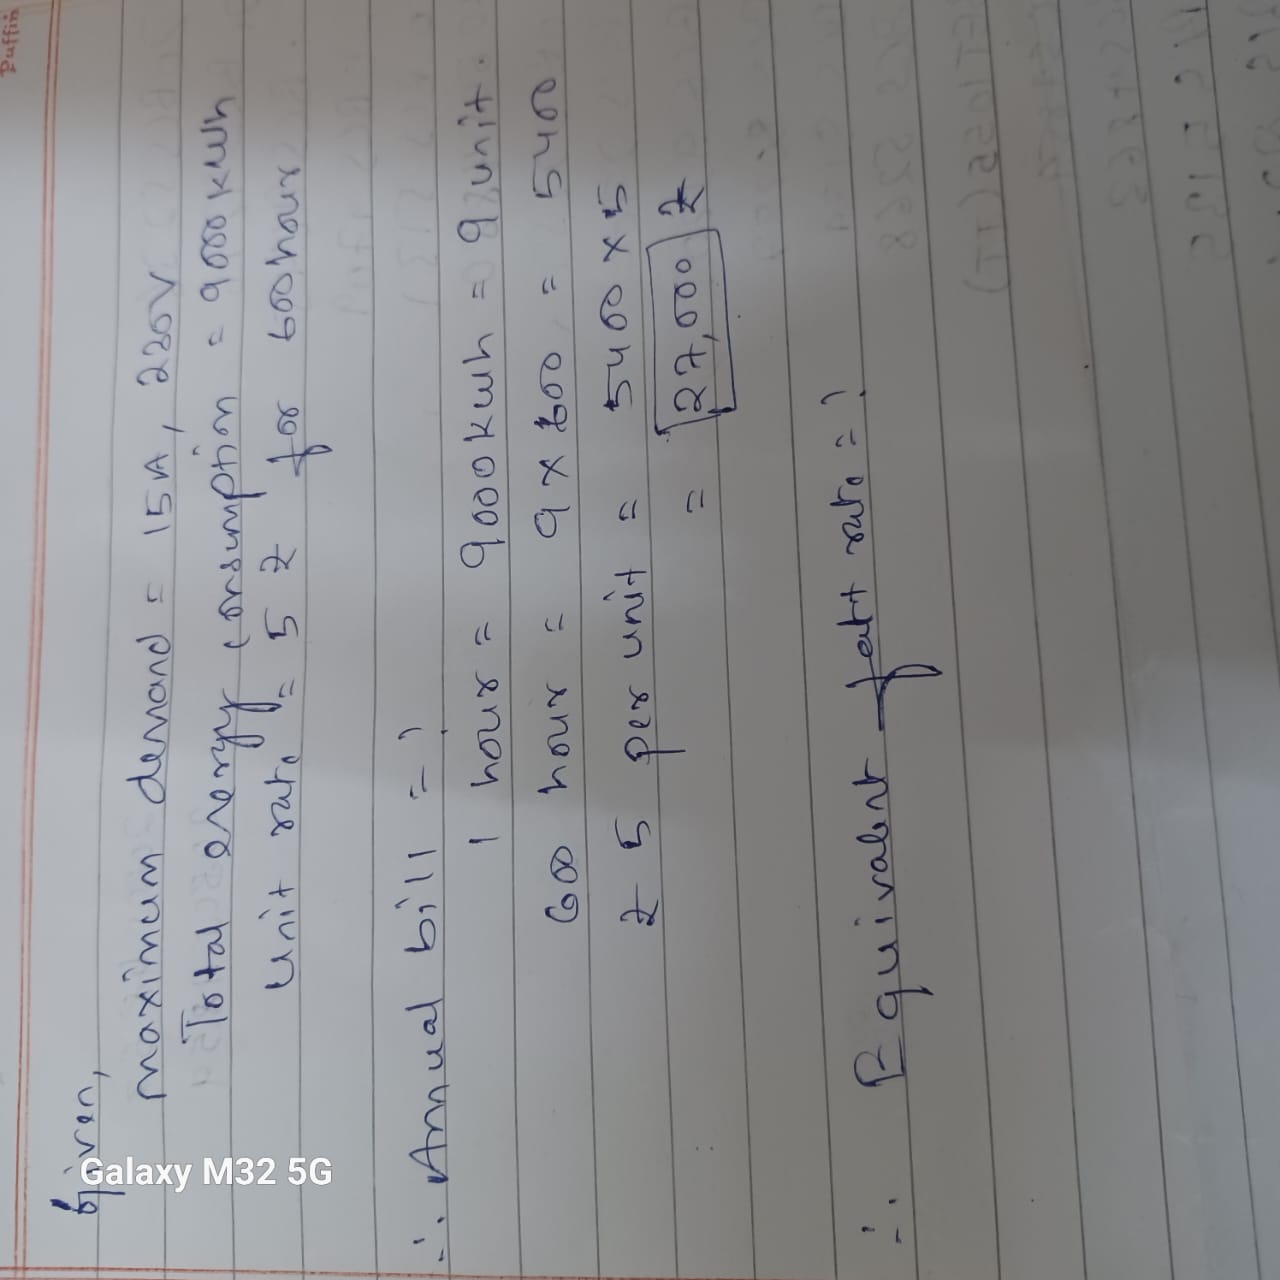 Puffin
Given,
maximum demand = 15A, 230V
Total energy consumption = 9000 kwh
Unit rate = 5 ₹ for 600 hour
∴ Annual bill = ?
1 hour = 9000 kwh = 9 unit.
600 hour = 9 × 600 = 5400
₹ 5 per unit = 5400 × 5
= 27,000 ₹
∴ Equivalent fatt rate = ?
Galaxy M32 5G